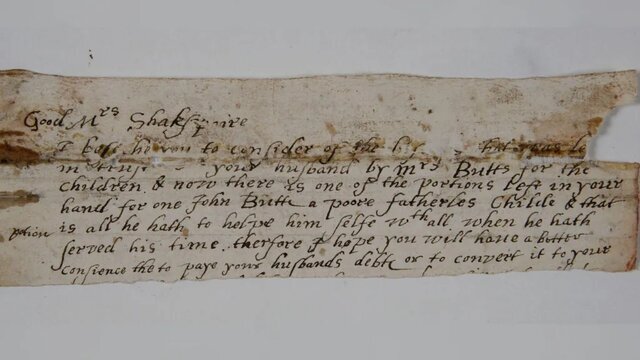 Good Mrs Shakspaire
I besech you to consider of the
in trust your husband by mrs Butts for the
children & now there is one of the portions left in your
hand for one John Butts a poore fatherles Childe & that
potion is all he hath to helpe him selfe wthall when he hath
served his time therfore I hope you will have a better
consience the to paye your husbands debts or to convert it to your